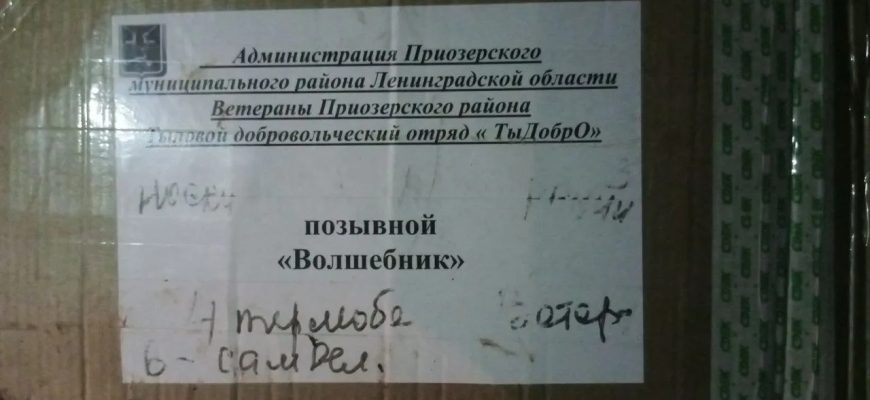 Администрация Приозерского
муниципального района Ленинградской области
Ветераны Приозерского района
Тыловой добровольческий отряд « ТыДобрО»
носки
позывной
«Волшебник»
6 - самдел.